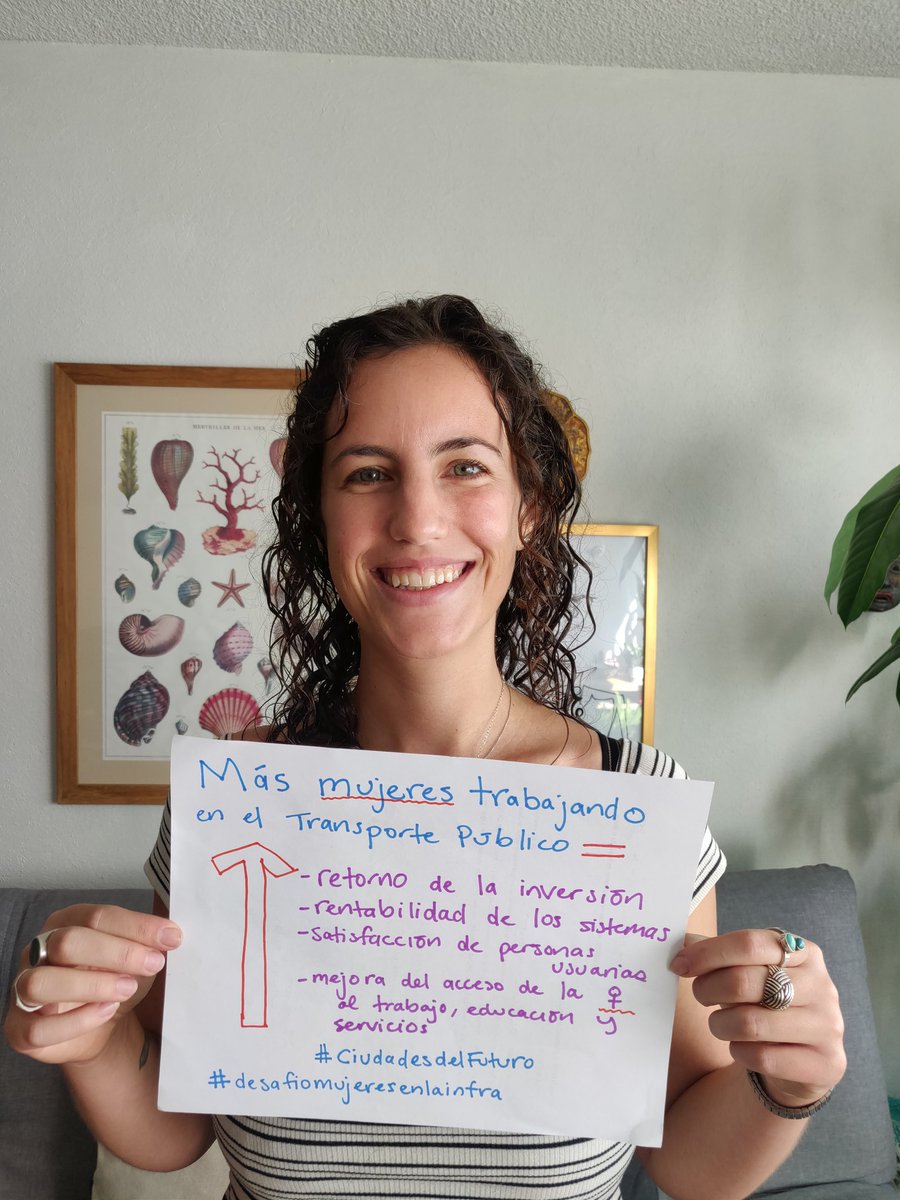 MERVEILLES DE LA MER
Más mujeres trabajando
en el Transporte Público =
- retorno de la inversión
- rentabilidad de los sistemas
- satisfacción de personas
usuarias
- mejora del acceso de la ♀
al trabajo, educación y
servicios
#CiudadesdelFuturo
#desafiomujeresenlainfra